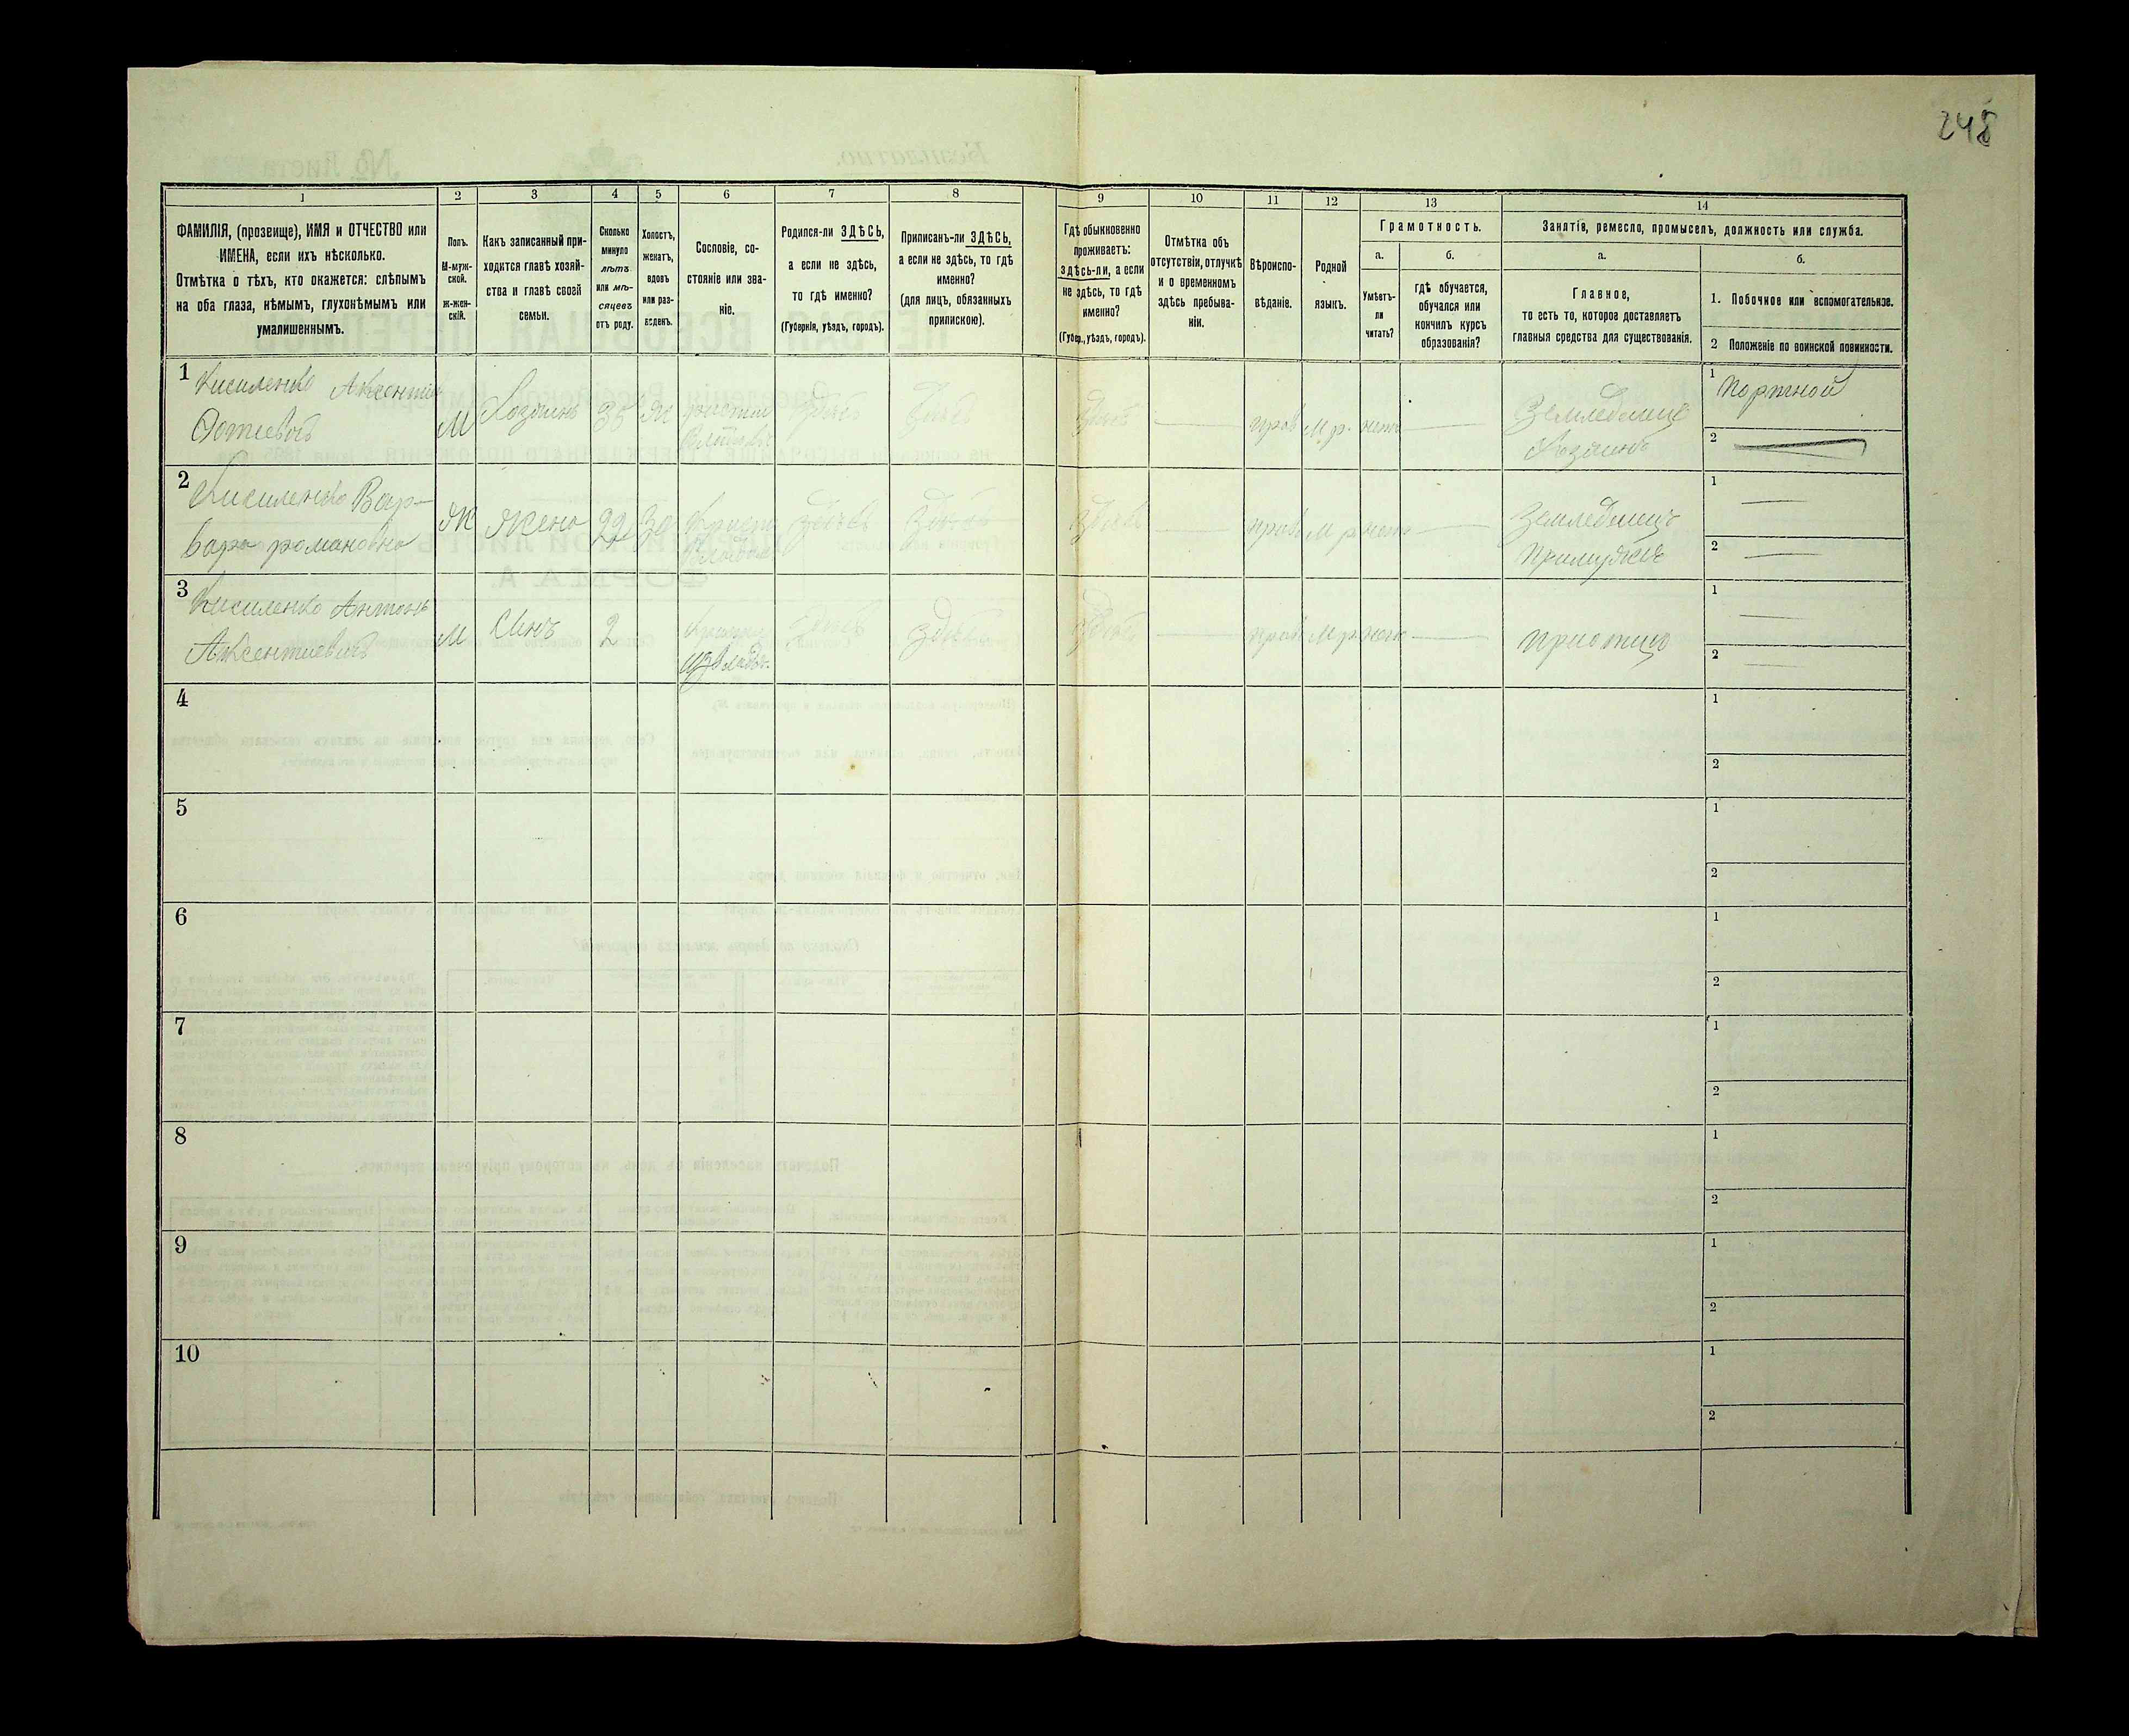 248
1
2
3
4
5
6
7
8
9
10
11
12
13
14
ФАМИЛІЯ, (прозвище), ИМЯ и ОТЧЕСТВО или
ИМЕНА, если ихъ нѣсколько.
Отмѣтка о тѣхъ, кто окажется: слѣпымъ
на оба глаза, нѣмымъ, глухонѣмымъ или
умалишеннымъ.
Полъ.
М-муж-
ской.
ж-жен-
скій.
Какъ записанный при-
ходится главѣ хозяй-
ства и главѣ своей
семьи.
Сколько
минуло
лѣтъ
или мѣ-
сяцевъ
отъ роду.
Холостъ,
женатъ,
вдовъ
или раз-
веденъ.
Сословіе, со-
стояніе или зва-
ніе.
Родился-ли ЗДѢСЬ,
а если не здѣсь,
то гдѣ именно?
(Губернія, уѣздъ, городъ).
Приписанъ-ли ЗДѢСЬ,
а если не здѣсь, то гдѣ
именно?
(для лицъ, обязанныхъ
припискою).
Гдѣ обыкновенно
проживаетъ:
здѣсь-ли, а если
не здѣсь, то гдѣ
именно?
(Губер., уѣздъ, городъ).
Отмѣтка объ
отсутствіи, отлучкѣ
и о временномъ
здѣсь пребыва-
ніи.
Вѣроиспо-
вѣданіе.
Родной
языкъ.
Грамотность.
а.
Умѣетъ-
ли
читать?
б.
гдѣ обучается,
обучался или
кончилъ курсъ
образованія?
Занятіе, ремесло, промыселъ, должность или служба.
а.
Главное,
то есть то, которое доставляетъ
главныя средства для существованія.
б.
1. Побочное или вспомогательное.
2 Положеніе по воинской повинности.
1
Кисиленко Аксентій
Фотіевъ
М
Хозяинъ
Ж
здѣсь
здѣсь
здѣсь
прав
М р.
нетъ
Земледелие
Хозяинъ
1
Портной
2
2
Кисиленко Вар-
вара романовна
Ж
Жена
22
за
здѣсь
здѣсь
здѣсь
прав
М р
нетъ
1
2
3
Кисиленко Антонъ
Аксентиевъ
М
Синъ
2
здѣсь
здѣсь
здѣсь
прав
М р
нетъ
приотцѣ
1
2
4
1
2
5
1
2
6
1
2
7
1
2
8
1
2
9
1
2
10
1
2